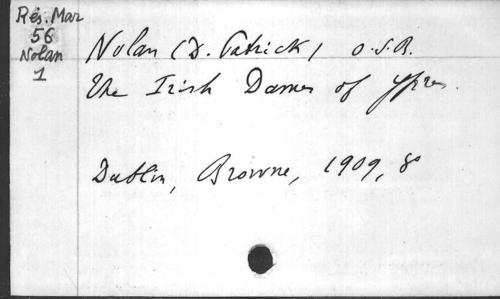 Rés. Mar
56
Nolan
1
Nolan (D. Patrick) O.S.B.
The Irish Dames of Ypres.
Dublin, Browne, 1909, 8°